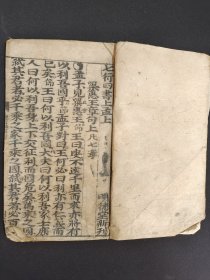 書上孟上
梁惠王章句上凡七章
孟子見梁惠王王曰叟不遠千里而來亦將有
以利吾國乎孟子對曰王何必曰利亦有仁義而
已矣王曰何以利吾國大夫曰何以利吾家士庶
人曰何以利吾身上下交征利而國危矣萬乘之國
弒其君者必千乘之家千乘之國弒其君者必百